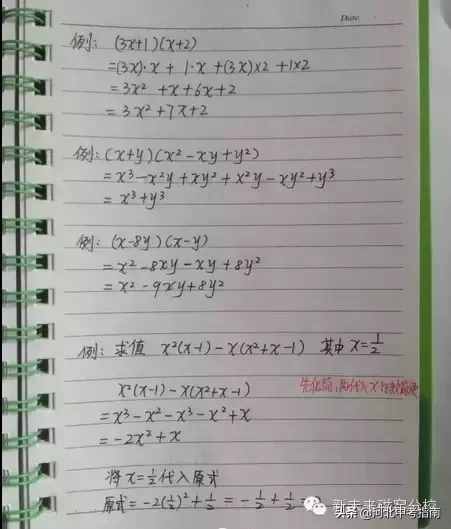 Date
例: (3x+1)(x+2)
=(3x)·x + 1·x +(3x)×2 +1×2
= 3x² +x +6x+2
= 3x²+7x+2
例: (x+y)(x²-xy+y²)
= x³-x²y+xy²+x²y-xy²+y³
= x³+y³
例: (x-8y)(x-y)
= x²-8xy-xy+8y²
= x²-9xy+8y²
例: 求值 x²(x-1)-x(x²+x-1) 其中 x=1/2
x²(x-1)-x(x²+x-1)
先化简,再代入x
= x³-x²-x³-x²+x
= -2x²+x
将 x=1/2 代入原式
原式= -2(1/2)²+1/2 = -1/2+1/2 =
新未来磁窑分校
头条@河北中考指南